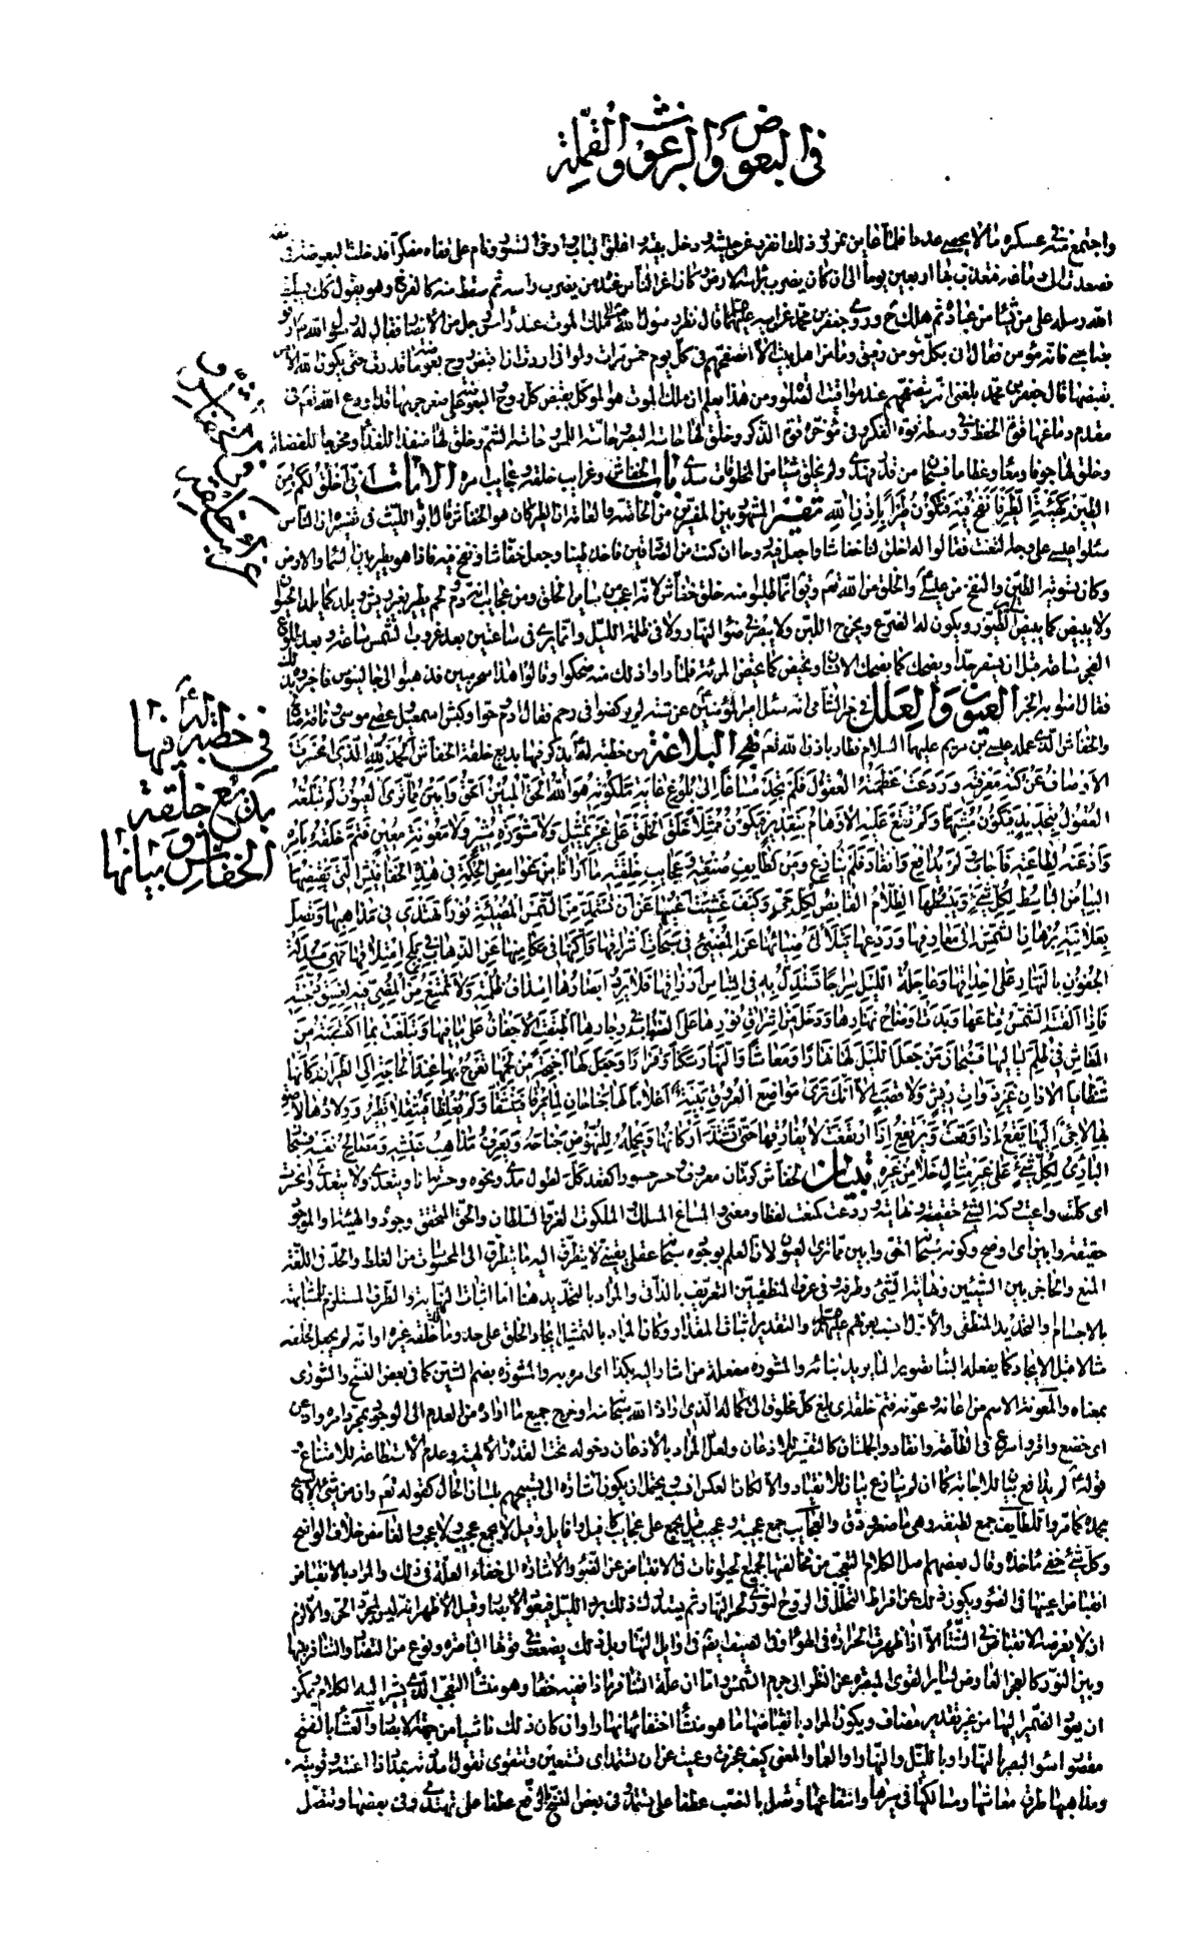 في البعوض والبرغوث والقملة
واجتمع في عسكره ما لا يحصى عددها فلما عاين نمرود ذلك انفرد عن جيشه ودخل بيته واغلق الابواب وارخى الستور ونام على قفاه مفكرا فدخلت البعوضة في انفه
فصعدت الى دماغه فعذب بها اربعين يوما الى ان كان يضرب براسه الارض وكان اعز الناس عنده من يضرب راسه ثم سقط منه كالفرخ وهو يقول كذلك يسلط
الله رسله على من يشاء من عباده ثم هلك ح وروى جعفر بن محمد عن ابيه قال نظر رسول الله الى ملك الموت عند راس رجل من الانصار فقال له رسول الله ارفق
بصاحبي فانه مؤمن فقال اني بكل مؤمن رفيق وما من اهل بيت الا اتصفحهم في كل يوم خمس مرات ولو اني اردت ان اقبض روح بعوضة ما قدرت حتى يكون من الله الامر
بقبضها قال جعفر بن محمد بلغني انه يتصفحهم عند مواقيت الصلوة ومن هذا يعلم ان ملك الموت هو الموكل بقبض كل روح البعوضة على صغر جرمها قد اودع الله تعالى في
مقدم دماغها قوة الحفظ وفي وسطه قوة الفكر وفي مؤخره قوة الذكر وخلق لها حاسة البصر وحاسة اللمس وحاسة الشم وخلق لها منفذا للغذاء ومخرجا للفضلة
وخلق لها جوفا ومعاء وعظاما فسبحان من قدر فهدى ولم يخلق شيئا من المخلوقات سدى باب الخفاش وغرايب خلقه وعجايب امره الايات اني اخلق لكم من
الطين كهيئة الطير فانفخ فيه فيكون طيرا باذن الله تفسير المشهور بين المفسرين من الخاصة والعامة ان الطير كان هو الخفاش قال ابو الليث في تفسيره ان الناس
سئلوا عيسى على وجه التعنت فقالوا له اخلق لنا خفاشا واجعل فيه روحا ان كنت من الصادقين فاخذ طينا وجعل خفاشا ونفخ فيه فاذا هو يطير بين السماء والارض
وكان تسوية الطين والنفخ من عيسى والخلق من الله تعالى ويقال انما طلبوا منه خلق خفاش لانه اعجب من ساير الخلق ومن عجايبه انه دم ولحم يطير بغير ريش ويلد كما يلد الحيوان
ولا يبيض كما يبيض ساير الطيور ويكون له الضرع ويخرج اللبن ولا يبصر في ضوء النهار ولا في ظلمة الليل وانما يرى في ساعتين بعد غروب الشمس ساعة وبعد طلوع
الفجر ساعة قبل ان يسفر جدا ويضحك كما يضحك الانسان ويحيض كما تحيض المراة فلما راوا ذلك منه ضحكوا وقالوا هذا سحر مبين فذهبوا الى جالينوس فاخبروه بذلك
فقال امنوا به الخبر العيون والعلل في خبر الشامي انه سئل امير المؤمنين عن ستة لم يركضوا في رحم فقال ادم وحوا وكبش اسمعيل وعصى موسى وناقة صالح
والخفاش الذي عمله عيسى بن مريم عليهما السلام فطار باذن الله تعالى نهج البلاغة من خطبة له يذكر فيها بديع خلقة الخفاش الحمد لله الذي انحسرت
الاوصاف عن كنه معرفته وردعت عظمته العقول فلم تجد مساغا الى بلوغ غاية ملكوته هو الله الحق المبين احق وابين مما ترى العيون لم تبلغه
العقول بتحديد فيكون مشبها ولم تقع عليه الاوهام بتقدير فيكون ممثلا خلق الخلق على غير تمثيل ولا مشورة مشير ولا معونة معين فتم خلقه بامره
واذعن لطاعته فاجاب ولم يدافع وانقاد فلم ينازع ومن لطايف صنعته وعجايب خلقته ما ارانا من غوامض الحكمة في هذه الخفافيش التي يقبضها
الضياء الباسط لكل شيء ويبسطها الظلام القابض لكل حي وكيف عشيت اعينها عن ان تستمد من الشمس المضيئة نورا تهتدي به في مذاهبها وتصل
بعلانية برهان الشمس الى معارفها وردعها بتلألؤ ضيائها عن المضي في سبحات اشراقها واكنها في مكامنها عن الذهاب في بلج ائتلاقها فهي مسدلة
الجفون بالنهار على احداقها وجاعلة الليل سراجا تستدل به في التماس ارزاقها فلا يرد ابصارها اسداف ظلمته ولا تمتنع من المضي فيه لغسق دجنته
فاذا القت الشمس قناعها وبدت اوضاح نهارها ودخل من اشراق نورها على الضباب في وجارها اطبقت الاجفان على ماقيها وتبلغت بما اكتسبته من
المعاش في ظلم لياليها فسبحان من جعل الليل لها نهارا ومعاشا والنهار سكنا وقرارا وجعل لها اجنحة من لحمها تعرج بها عند الحاجة الى الطيران كانها
شظايا الاذان غير ذوات ريش ولا قصب الا انك ترى مواضع العروق بينة اعلاما لها جناحان لما يرقا فينشقا ولم يغلظا فيثقلا تطير وولدها لاصق
بها لاجئ اليها يقع اذا وقعت ويرتفع اذا ارتفعت لا يفارقها حتى تشتد اركانه ويحمله للنهوض جناحه ويعرف مذاهب عيشه ومصالح نفسه فسبحان
البارئ لكل شيء على غير مثال خلا من غيره بيان الخفاش كرمان معروف
حقيقة وابين اي اوضح وكونه سبحانه احق وابين مما ترى العيون لان العلم بوجوده سبحانه عقلي يقيني لا يتطرق اليه ما يتطرق الى المحسوسات من الغلط والحد في اللغة
المنع والحاجز بين الشيئين ونهاية الشيء وطرفه وفي عرف المنطقيين التعريف بالذاتي والمراد بالتحديد هنا اما اثبات النهاية والطرف المستلزم للمشابهة
بالاجسام والتحديد المنطقي والاول انسب بعرفهم والتقدير اثبات المقدار وكان المراد بالتمثيل ايجاد الخلق على حذو ما خلقه غيره او انه لم يجعل لخلقه
مثالا قبل الايجاد كما يفعله البناء تصويرا لما يريد بنائه والمشورة مفعلة من اشار اليه بكذا اي امره به والمشورة بضم الشين كما في بعض النسخ والشورى
بمعناه والمعونة الاسم من اعانه وعونه فتم خلقه اي بلغ كل مخلوق الى كماله الذي اراده الله سبحانه او خرج جميع ما اراده من العدم الى الوجود بمجرد امره واذعن
اي خضع واقر واسرع في الطاعة وانقاد والجملتان كالتفسير للاذعان ولعل المراد بالاذعان دخوله تحت القدرة الالهية وعدم الاستطاعة للامتناع
قوله لم يدافع بيان للاجابة كما ان لم ينازع بيان للانقياد والا لكان العكس انسب ويحتمل ان يكون اشارة الى تسبيحهم بلسان الحال كقوله تعالى وان من شيء الا يسبح
بحمده كما مر واللطايف جمع لطيفة وهي ما صغر ودق والعجايب جمع عجيبة
وكل شيء خفي ماخذه وقال بعضهم اصل الكلام التعجب من مخالفتها لجميع الحيوانات في الانقباض عن الضوء والاشارة الى خفاء العلة في ذلك والمراد بالانقباض
انقباض اعينها في الضوء ويكون ذلك عن افراط التحلل في الروح النوري لحر النهار ثم يستدرك ذلك برد الليل فيعود الابصار وقيل الاظهر انه ليس لمجرد الحر والا لزم
ان لا يعرض الانقباض في الشتاء الا اذا ظهرت الحرارة في الهواء وفي الصيف ايضا في اوايل النهار بل ذلك لضعف في قوتها الباصرة ونوع من التضاد والتنافر بينها
وبين النور كالعجز العارض لساير القوى المبصرة عن النظر الى جرم الشمس واما ان علة التنافر ماذا ففيه خفاء وهو منشأ التعجب الذي يشير اليه الكلام ويمكن
ان يعود الضمير اليها من غير تقدير مضاف ويكون المراد بانقباضها ما هو منشأ اختفائها نهارا وان كان ذلك ناشيا من جهة الابصار والعشا بالفتح
مقصورا سوء البصر بالنهار او بالليل والنهار او العمى والمعنى كيف عجزت وعميت عن ان تستمد اي تستعين وتتقوى تقول امددته بمدد اذا اعنته وقويته.
ومذاهبها طرق معاشها ومسالكها في سيرها وانتفاعها وتصل بالنصب عطفا على تستمد وفي بعض النسخ بالرفع عطفا على تهتدي وفي بعضها وتتصل
في خطبة له فيها
بديع خلقة
الخفاش وبيانها